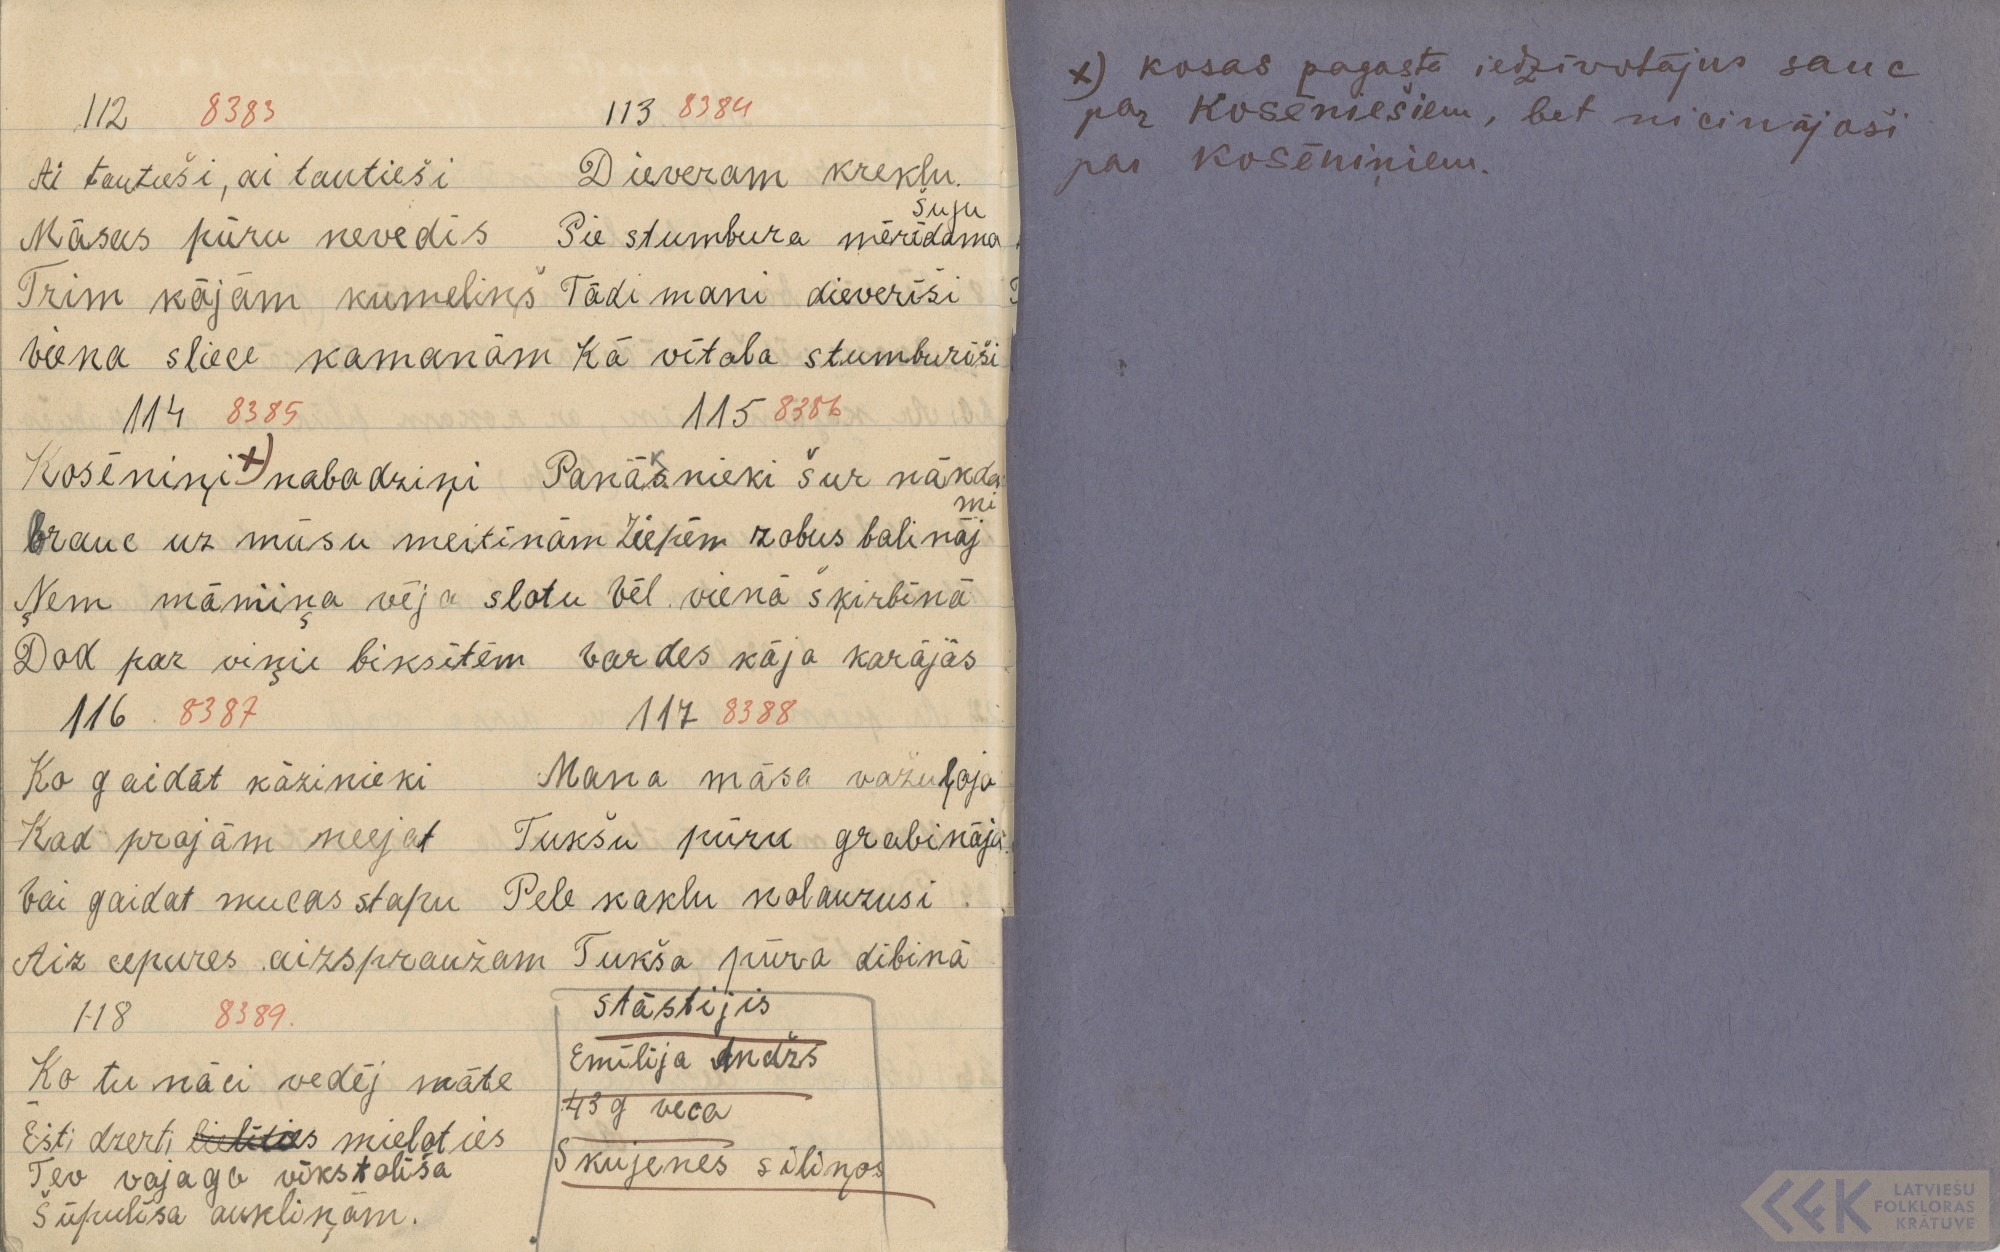 112 8383
Ai tautieši, ai tautieši
Māsas pūru nevedīs
Trim kājām kumeliņš
Viena sliece kamanām
113 8384
Dieveram kreklu šuju
Pie stumbura mērīdama
Tādi mani dieverīši
Kā vītola stumburīši
114 8385
Kosēniņi x) nabadziņi
Brauc uz mūsu meitiņām
Ņem māmiņa vēja slotu
Dod par viņu biksītēm
115 8386
Panāknieki šur nākdami
Ziepēm zobus balināj
Vēl vienā šķirbinā
Vardes kāja karājās
116 8387
Ko gaidāt kāzinieki
Kad projām neejat
Vai gaidat mucas stapu
Aiz cepures aizspraužam
117 8388
Mana māsa važuļoja
Tukšu pūru grabināja
Pele kaklu nolauzusi
Tukša pūra dibinā
118 8389.
Ko tu nāci vedēj māte
Ēsti dzerti mieloties
Tev vajaga vīkstolīša
Šūpulīša aukliņām.
stāstijis
Emīlija Andžs
43 g veca
Skujenes siliņos
x) Kosas pagasta iedzīvotājus sauc
par Kosēniešiem, bet nicinājoši
par Kosēniņiem.
LATVIEŠU
FOLKLORAS
KRĀTUVE